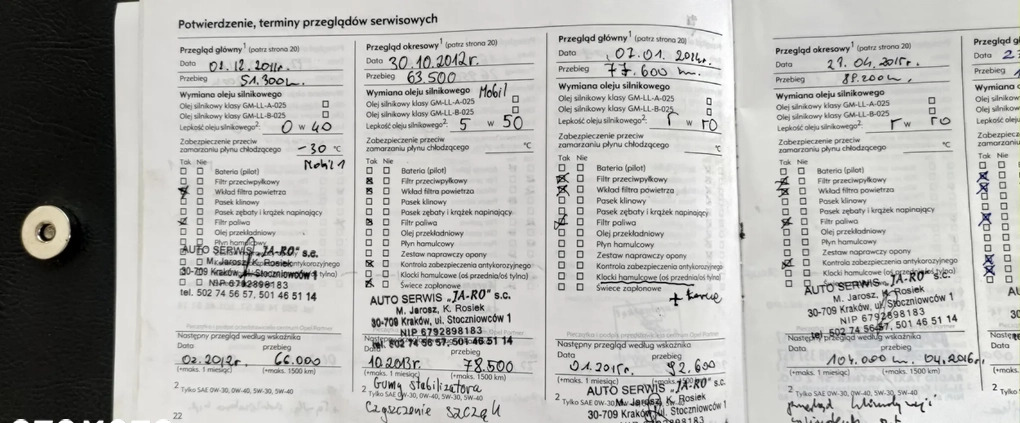 Potwierdzenie, terminy przeglądów serwisowych
Przegląd główny¹ (patrz strona 20)
Data 01.12.2011r.
Przebieg 51.300
Wymiana oleju silnikowego
Olej silnikowy klasy GM-LL-A-025
Olej silnikowy klasy GM-LL-B-025
Lepkość oleju silnikowego²: 0 W 40
Zabezpieczenie przeciw
zamarzaniu płynu chłodzącego -30 °C
Tak Nie Mobil 1
Bateria (pilot)
Filtr przeciwpyłkowy
Wkład filtra powietrza
Pasek klinowy
Pasek zębaty i krążek napinający
Filtr paliwa
Olej przekładniowy
Płyn hamulcowy
AUTO SERWIS "JA-RO" s.c.
M. Jarosz, K. Rosiek
30-709 Kraków, ul. Stoczniowców 1
NIP 6792898183
tel. 502 74 56 57, 501 46 51 14
Następny przegląd według wskaźnika
Data przebieg
02.2012r. 66.000
(+maks. 1 miesiąc) (+maks. 1500 km)
2 Tylko SAE 0W-30, 0W-40, 5W-30, 5W-40
22
Przegląd okresowy¹ (patrz strona 20)
Data 30.10.2012r.
Przebieg 63.500
Wymiana oleju silnikowego Mobil
Olej silnikowy klasy GM-LL-A-025
Olej silnikowy klasy GM-LL-B-025
Lepkość oleju silnikowego²: 5 W 50
Zabezpieczenie przeciw
zamarzaniu płynu chłodzącego °C
Tak Nie
Bateria (pilot)
Filtr przeciwpyłkowy
Wkład filtra powietrza
Pasek klinowy
Pasek zębaty i krążek napinający
Filtr paliwa
Olej przekładniowy
Płyn hamulcowy
Zestaw naprawczy opony
Kontrola zabezpieczenia antykorozyjnego
Klocki hamulcowe (oś przednia/oś tylna)
Świece zapłonowe
AUTO SERWIS "JA-RO" s.c.
M. Jarosz, K. Rosiek
30-709 Kraków, ul. Stoczniowców 1
NIP 6792898183
tel. 502 74 56 57, 501 46 51 14
Data przebieg
10.2013r. 78.500
(+maks. 1 miesiąc) (+maks. 1500 km)
Gumy stabilizatora
2 Tylko SAE 0W-30, 0W-40, 5W-30, 5W-40
Czyszczenie szczęk
Przegląd główny¹ (patrz strona 20)
Data 07.01.2014r.
Przebieg 77.600
Wymiana oleju silnikowego
Olej silnikowy klasy GM-LL-A-025
Olej silnikowy klasy GM-LL-B-025
Lepkość oleju silnikowego²: W
Zabezpieczenie przeciw
zamarzaniu płynu chłodzącego °C
Tak Nie
Bateria (pilot)
Filtr przeciwpyłkowy
Wkład filtra powietrza
Pasek klinowy
Pasek zębaty i krążek napinający
Filtr paliwa
Olej przekładniowy
Płyn hamulcowy
Zestaw naprawczy opony
Kontrola zabezpieczenia antykorozyjnego
Klocki hamulcowe (oś przednia/oś tylna)
Świece zapłonowe
Następny przegląd według wskaźnika
Data przebieg
01.2015r. 92.600
(+maks. 1 miesiąc)
AUTO SERWIS "JA-RO" s.c.
M. Jarosz, K. Rosiek
30-709 Kraków, ul. Stoczniowców 1
Przegląd okresowy¹ (patrz strona 20)
Data 29.04.2015r.
Przebieg 89.200
Wymiana oleju silnikowego
Olej silnikowy klasy GM-LL-A-025
Olej silnikowy klasy GM-LL-B-025
Lepkość oleju silnikowego²: W
Zabezpieczenie przeciw
zamarzaniu płynu chłodzącego °C
Tak Nie
Bateria (pilot)
Filtr przeciwpyłkowy
Wkład filtra powietrza
Pasek klinowy
Pasek zębaty i krążek napinający
Filtr paliwa
Olej przekładniowy
Płyn hamulcowy
Zestaw naprawczy opony
Kontrola zabezpieczenia antykorozyjnego
Klocki hamulcowe (oś przednia/oś tylna)
AUTO SERWIS "JA-RO" s.c.
M. Jarosz, K. Rosiek
30-709 Kraków, ul. Stoczniowców 1
NIP 6792898183
tel. 502 74 56 57, 501 46 51 14
Następny przegląd według wskaźnika
Data przebieg
104.000 04.2016r.
(+maks. 1 miesiąc) (+maks. 1500 km)
2 Tylko SAE 0W-30, 0W-40, 5W-30, 5W-40